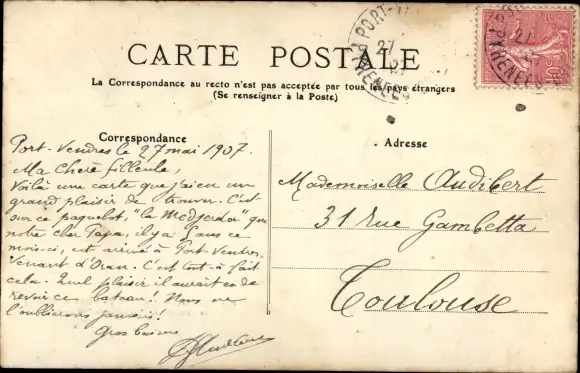 CARTE POSTALE
La Correspondance au recto n'est pas acceptée par tous les pays étrangers
(Se renseigner à la Poste)
Correspondance
Adresse
Port-Vendres le 27 mai 1907.
Ma Chère filleule,
Voilà une carte que j'ai eu un
grand plaisir de trouver. C'est
sur ce paquebot, "la Medjerda" que
notre cher Papa, il y a 5 ans ce
mois-ci, est arrivé à Port-Vendres,
venant d'Oran. C'est tout à fait
cela. Quel plaisir il aurait eu de
revoir ce bateau! Nous ne
l'oublierons jamais!
Gros baisers
Mademoiselle Audibert
31 Rue Gambetta
Toulouse
PORT-
27